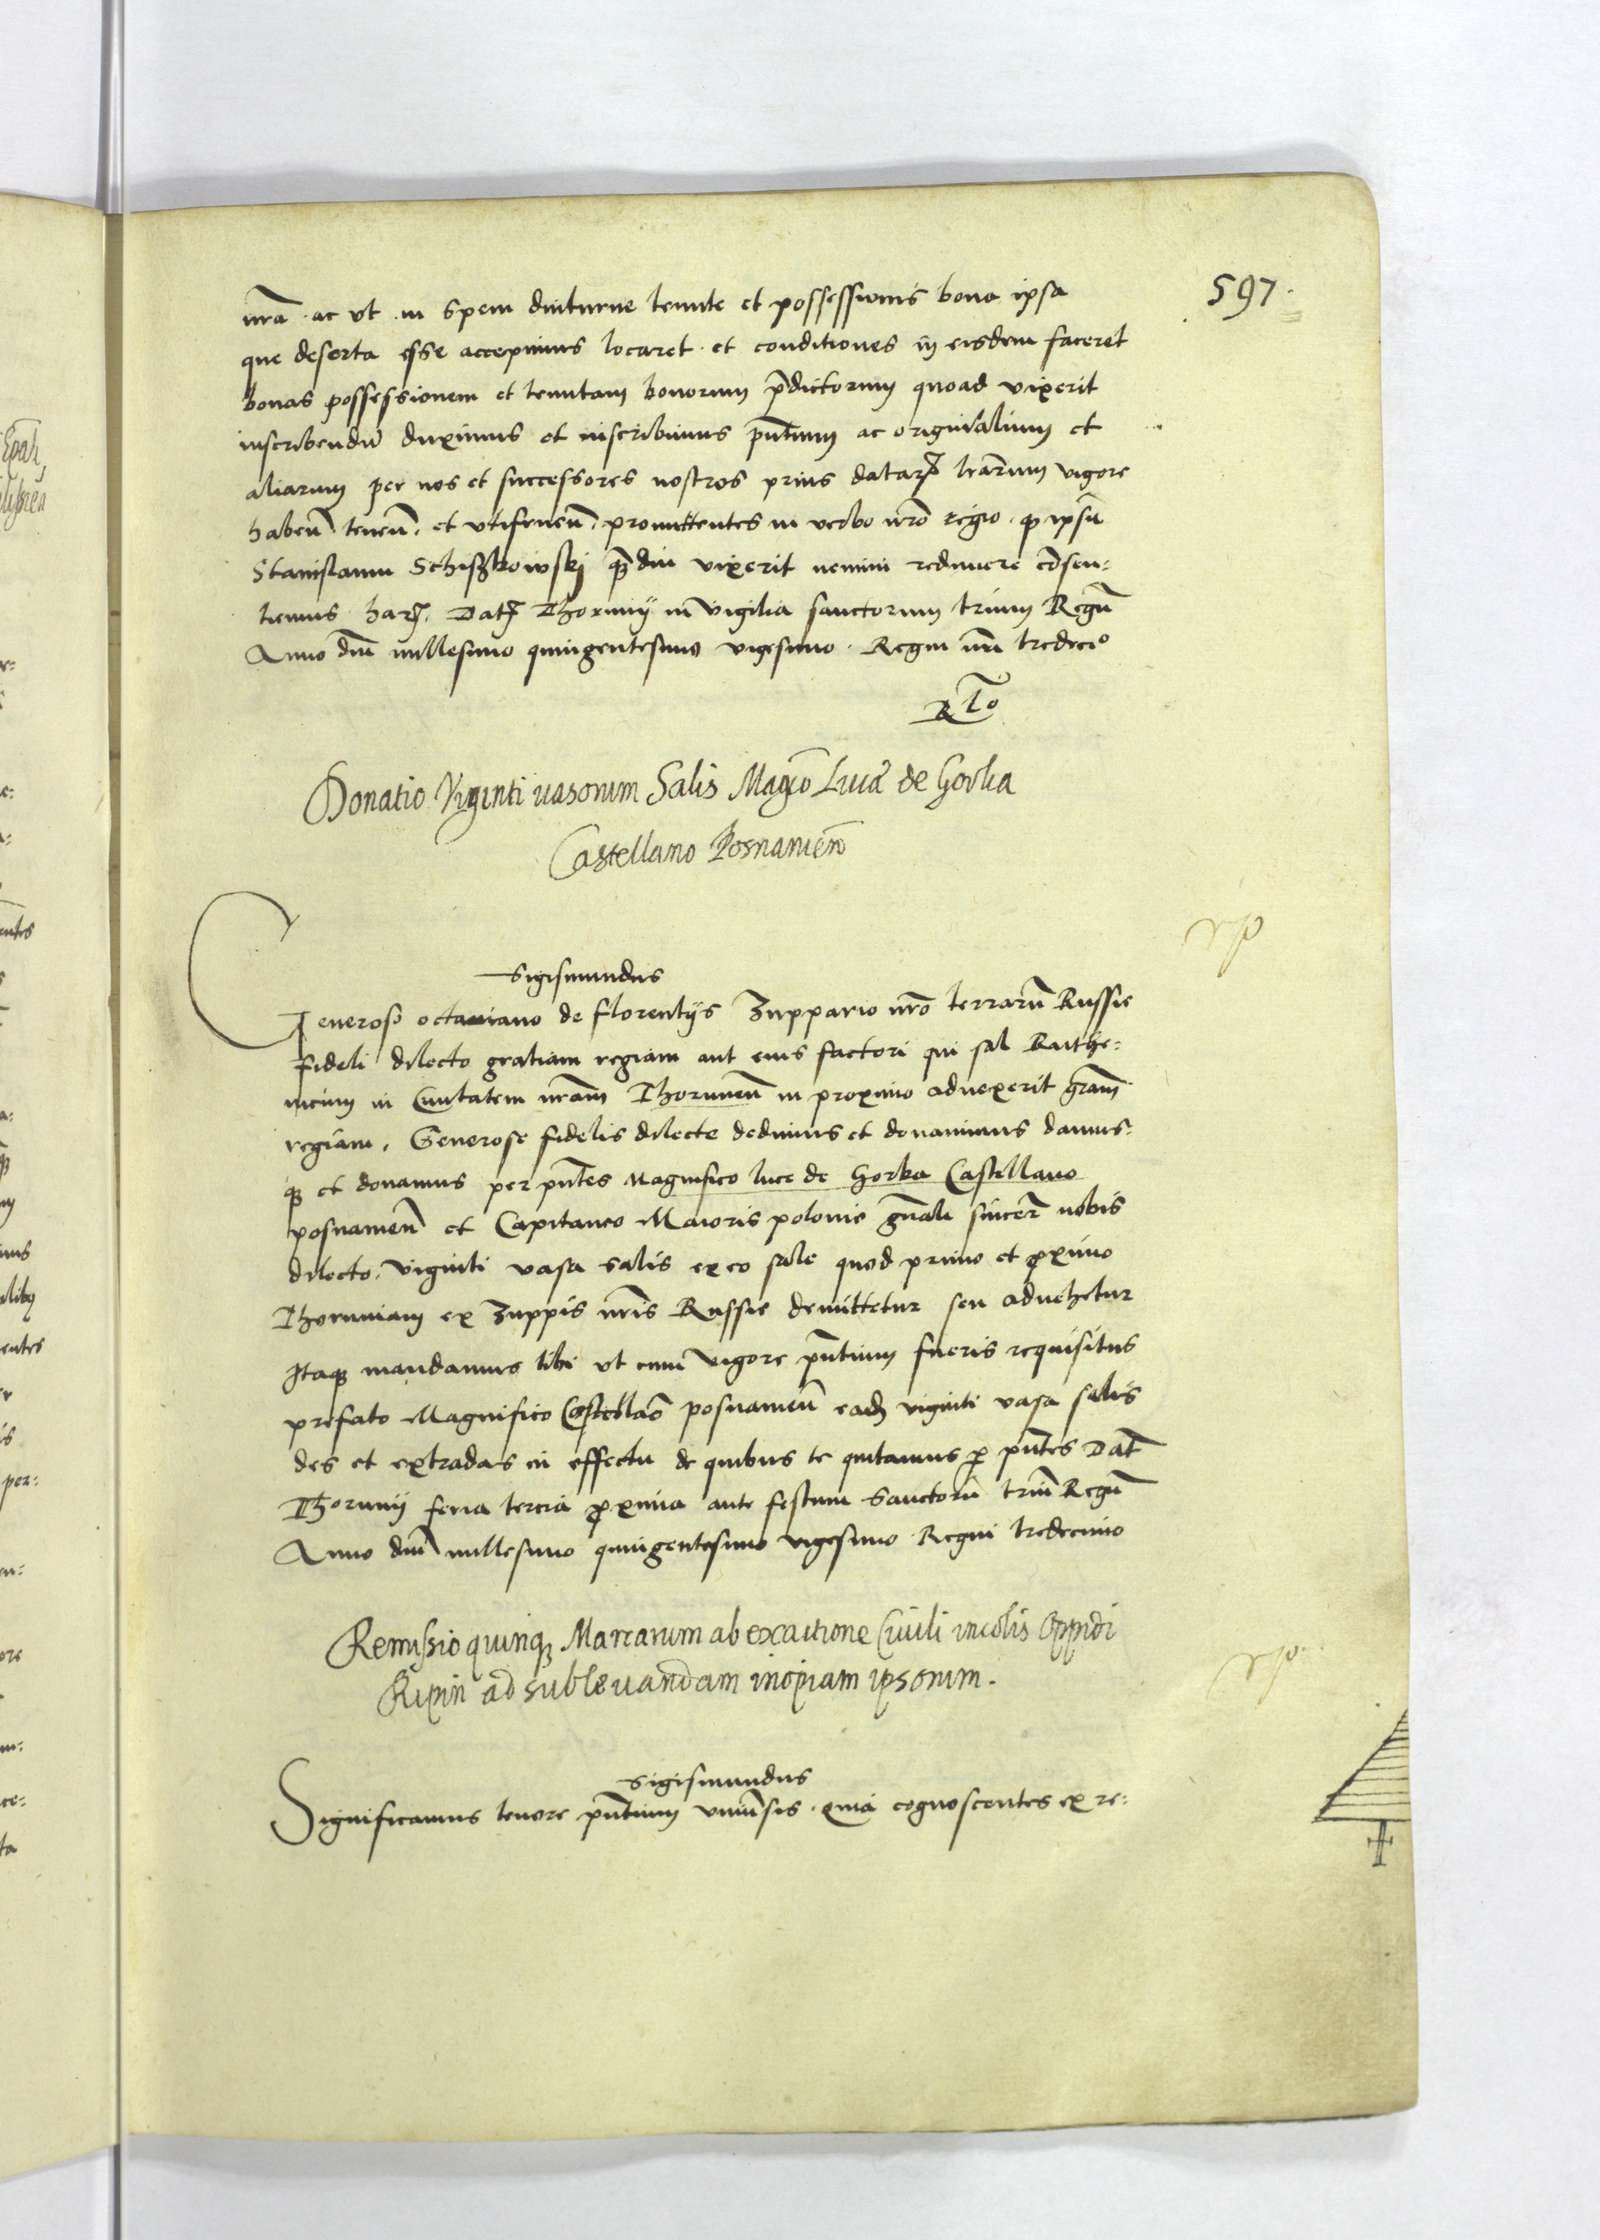 597.
nra ac ut in spem diuturne tenute et possessionis bona ipsa
que deserta esse accepimus locaret et conditiones in eisdem faceret
bonas possessionem et tenutam bonorum pdictorum quoad vixerit
inscribendu duximus et inscribimus pntium ac originalium et
aliarum per nos et successores nostros prius datar lrarum vigore
haben tenen et utifruen promittentes in verbo nro regio q ipsu
Stanislaum qdiu vixerit nemini redimere consen:
tiemus har Dat Thorunij in vigilia sanctorum trium Regu
Anno dni millesimo quingentesimo vigesimo Regni nri tredeci
Rlo
Donatio Viginti vasorum Salis Magco Luce de Gorka
Castellano Posnanien
Sigismundus
Generoso octaviano de florentijs Zuppario nro terraru Russie
fideli dilecto gratiam regiam aut eius factori qui sal Ruthe:
nicum in Civitatem nram Thorunen in proximo advexerit gram
regiam. Generose fidelis dilecte dedimus et donavimus damus:
q et donamus per pntes Magnifico luce de Gorka Castellano
posnanien et Capitaneo Maioris polonie gnali sincere nobis
dilecto viginti vasa salis ex eo sale quod primo et pximo
Thoruniam ex Zuppis nris Russie demittetur seu advehetur
Itaq mandamus tibi ut cum vigore pntium fueris requisitus
prefato Magnifico Castellao posnanien eadem viginti vasa salis
des et extradas in effectu de quibus te quitamus p pntes Dat
Thorunij feria tercia pxima ante festum Sanctoru triu Regu
Anno dni millesimo quingentesimo vigesimo Regni tredecimo
Remissio quinq Marcarum ab exactione Civili incolis Oppidi
Ripin ad sublevandam inopiam ipsorum.
Sigismundus
Significamus tenore pntium univsis quia cognoscentes ex re: